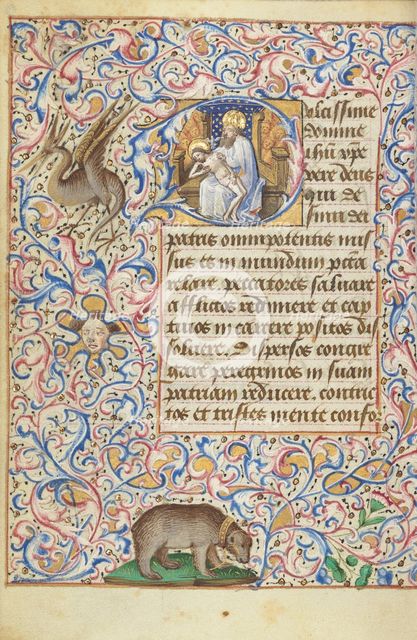 Dulcissime
domine
ihu xpe
vere deus
qui de
sinu dei
patris omnipotentis mis
sus es in mundum pcta
relaxare. peccatores saluare
afflictos redimere et cap
tiuos in carcere positos dis
soluere. Dispersos congre
gare peregrinos in suam
patriam reducere. contric
tos et tristes mente conso